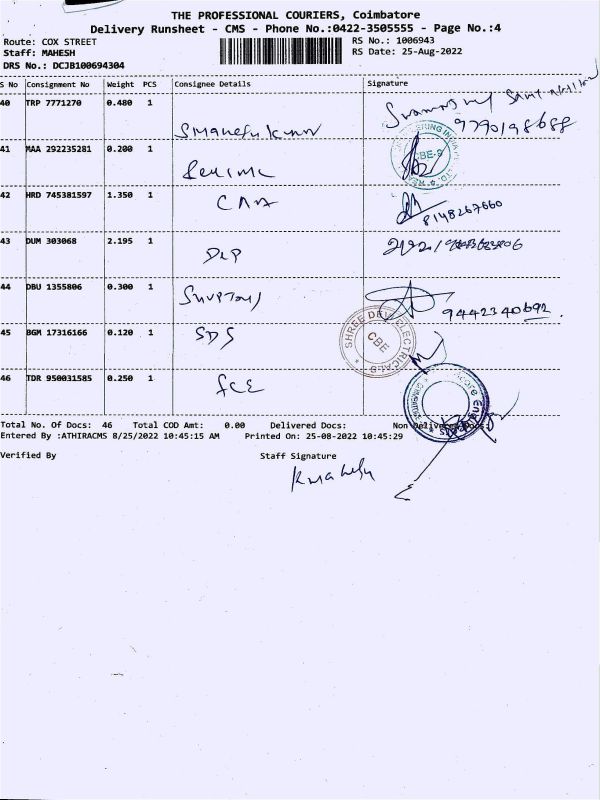 THE PROFESSIONAL COURIERS, Coimbatore
Delivery Runsheet - CMS - Phone No.:0422-3505555 - Page No.:4
Route: COX STREET
Staff: MAHESH
DRS No.: DCJB100694304
RS No.: 1006943
RS Date: 25-Aug-2022
S No Consignment No Weight PCS Consignee Details Signature
40 TRP 7771270 0.480 1
9790198688
41 MAA 292235281 0.200 1
CBE-9
42 HRD 745381597 1.350 1
8148267660
43 DUM 303068 2.195 1 DLP
44 DBU 1355806 0.300 1
9442340692
45 BGM 17316166 0.120 1 SDS
SHREE DEVI ELECTRICALS
CBE
46 TDR 950031585 0.250 1 FCE
Total No. Of Docs: 46 Total COD Amt: 0.00 Delivered Docs: Non Delivered Docs:
Entered By :ATHIRACMS 8/25/2022 10:45:15 AM Printed On: 25-08-2022 10:45:29
Verified By Staff Signature
K Mahesh